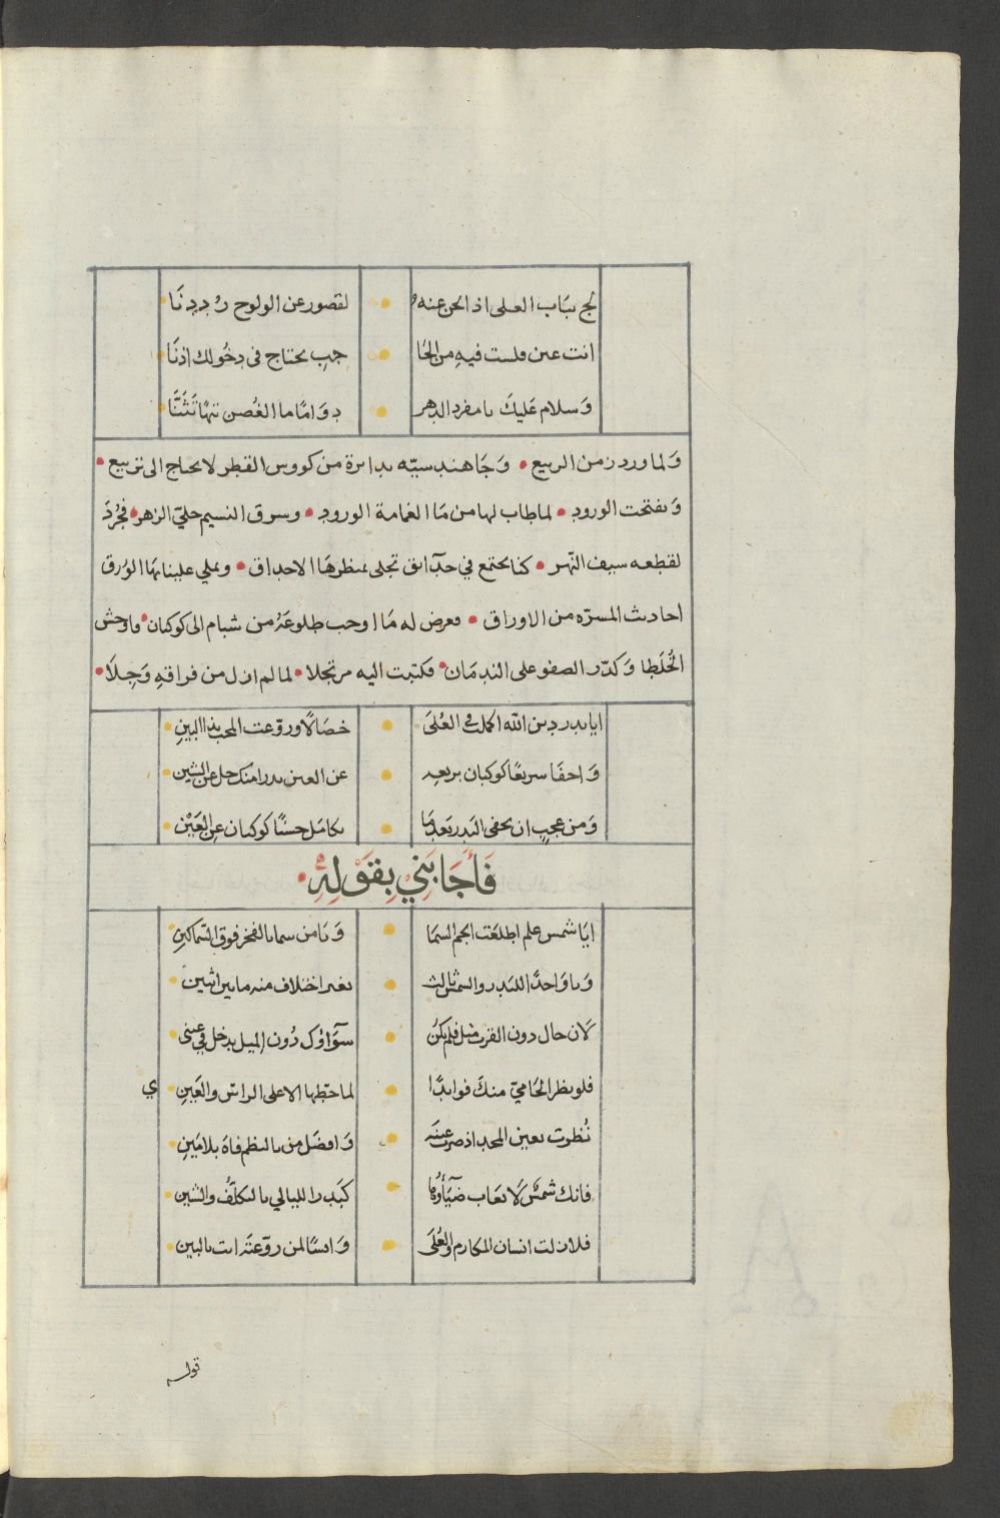 لج بباب العلى اذا لحن عنه • لقصور عن الولوج رددنا
انت عين ولست فيه من الحا • جب يحتاج في دخولك اذنا
وسلام عليك يا مفرد الدهر • دواما ما الغصن تيها تثنا
ولما ورد زمن الربيع • وجا هندسيه بدايرة من كووس القطر لا يحتاج الى تربيع •
وتفتحت الورود • لما طاب لها من ما الغمامة الورود • وسرق النسيم حلي الزهر • فجرد
لقطعه سيف النهر • كنا نجتمع في حدائق تجلى بمنظرها الاحداق • وتملي علينا بها الورق
احاديث المسره من الاوراق • فعرض له ما اوجب طلوعه من شبام الى كوكبان • فاوحش
الخلطا وكدر الصفو على الندمان • فكتبت اليه مرتجلا • لما لم ازل من فراقه وجلا •
ايا بدر دين الله اكملت في العلى • خصالا وروعت المحب بذا البين
واخفا سريعا كوكبان بريعه • عن العين بدرا منك جل عن الشين
ومن عجب ان يخفي البدر بعد ما • تكامل حسنا كوكبان عن العين
فأجابني بقوله •
ايا شمس علم اطلعت انجم السما • ويا من سما بالفخر فوق السماكين
ويا واحدا للبدر والشمس ثالث • بغير اختلاف منه ما بين اثنين
لان حال دون القرب ميل فلم يكن • سواؤك دون الميل يدخل في عيني
فلو نظر الحامي منك فوايدا • لما حطها الا على الراس والعين ي
نظرت بعين المحب اذ صرت عينه • وافضل من بالنظم فاه بلا مين
فانك شمس لا يعاب ضيأوها • كبدر الليالي بالتكلف والشين
فلا زلت انسان المكارم والعلى • وانسا لمن روعته انت بالبين
قوله